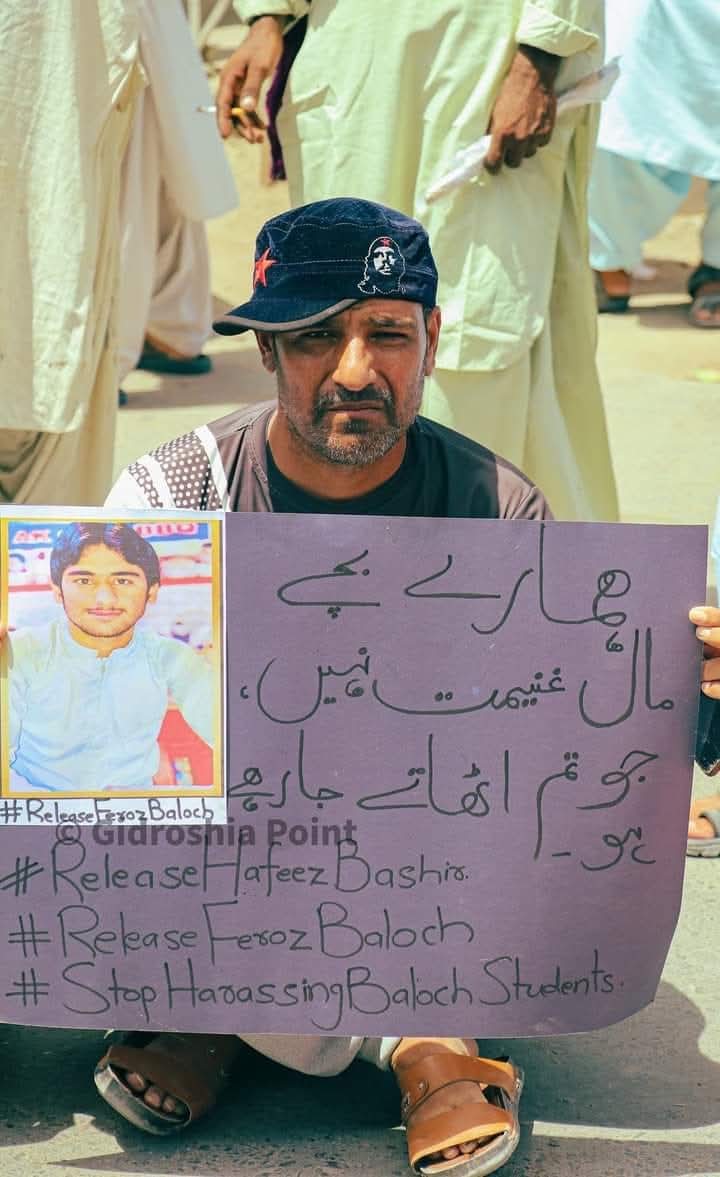 ہمارے بچے
مال غنیمت نہیں،
جو تم اٹھاتے جارہے
ہو۔
#ReleaseFerozBaloch
© Gidroshia Point
#ReleaseHafeezBashir.
#ReleaseFerozBaloch
#StopHarassingBaloch Students.